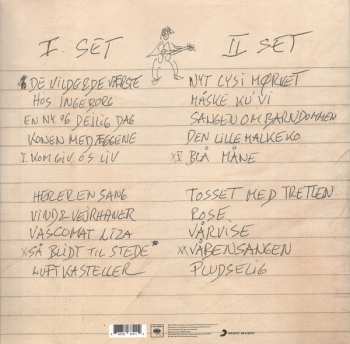 I. SET
DE VILDE DE VÆRSTE
HOS INGEBORG
EN NY OG DEJLIG DAG
KONEN MED ÆGGENE
KOM GIV OS LIV
HER ER EN SANG
VIND & VEJRHANER
VASCO MAT LIZA
SÅ BLIDT TIL STEDE
LUFTKASTELLER
II SET
NYT LYS I MØRKET
MÅSKE KU' VI
SANGEN OM BARNDOMMEN
DEN LILLE MALKEKO
BLÅ MÅNE
TOSSET MED TRETTEN
ROSE
VÅRVISE
VÅBENSANGEN
PLUDSELIG